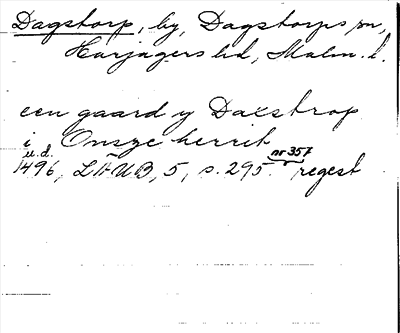 Dagstorp, by, Dagstorps sn,
Harjagers hd, Malm. l.
een gaard y Daxstrop
i Onsze herrit
u.d.
1496, LÄUB, 5, s. 295. nr 357 regest